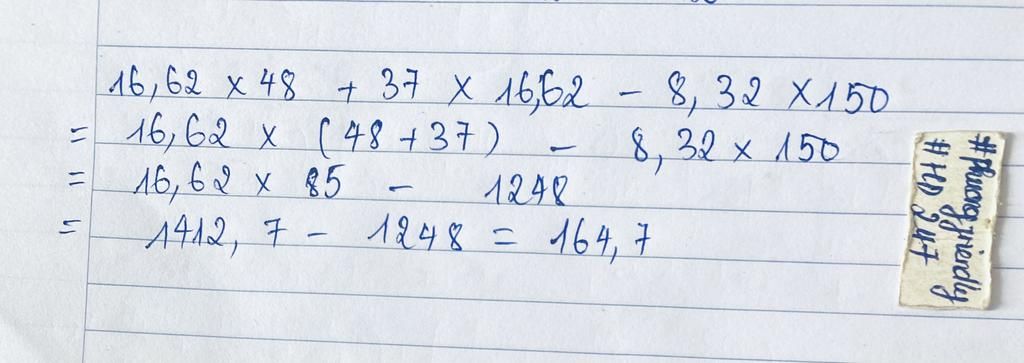 16,62 x 48 + 37 x 16,62 - 8,32 x 150
= 16,62 x (48 + 37) - 8,32 x 150
= 16,62 x 85 - 1248
= 1412,7 - 1248 = 164,7
#phuongfriendly
#HD 247